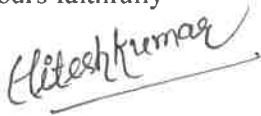 ours faithfully
Hiteshkumar